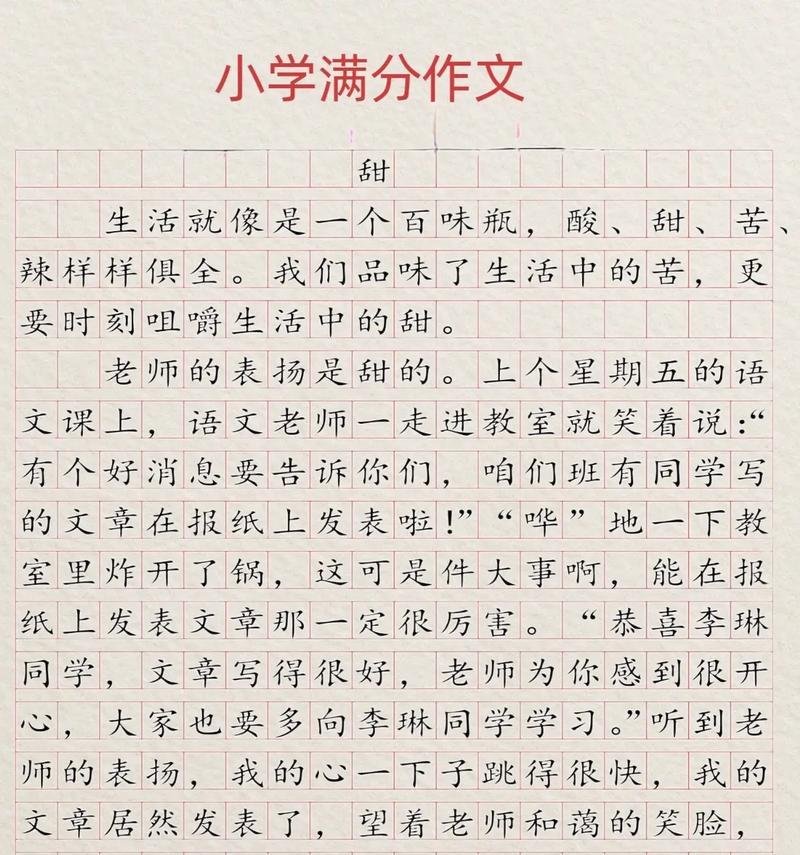 小学满分作文
甜
生活就像是一个百味瓶，酸、甜、苦、
辣样样俱全。我们品味了生活中的苦，更
要时刻咀嚼生活中的甜。
老师的表扬是甜的。上个星期五的语
文课上，语文老师一走进教室就笑着说：“
有个好消息要告诉你们，咱们班有同学写
的文章在报纸上发表啦！”“哗”地一下教
室里炸开了锅，这可是件大事啊，能在报
纸上发表文章那一定很厉害。“恭喜李琳
同学，文章写得很好，老师为你感到很开
心，大家也要多向李琳同学学习。”听到老
师的表扬，我的心一下子跳得很快，我的
文章居然发表了，望着老师和蔼的笑脸，